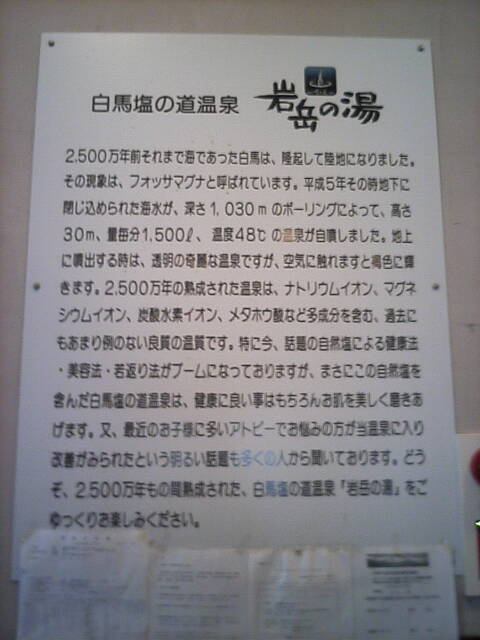 白馬塩の道温泉 岩岳の湯
2,500万年前それまで海であった白馬は、隆起して陸地になりました。
その現象は、フォッサマグナと呼ばれています。平成5年その時地下に
閉じ込められた海水が、深さ1,030mのボーリングによって、高さ
30m、量毎分1,500ℓ、温度48℃の温泉が自噴しました。地上
に噴出する時は、透明の奇麗な温泉ですが、空気に触れますと褐色に輝
きます。2,500万年の熟成された温泉は、ナトリウムイオン、マグネ
シウムイオン、炭酸水素イオン、メタホウ酸など多成分を含む、過去に
もあまり例のない良質の温質です。特に今、話題の自然塩による健康法
・美容法・若返り法がブームになっておりますが、まさにこの自然塩を
含んだ白馬塩の道温泉は、健康に良い事はもちろんお肌を美しく磨きあ
げます。又、最近のお子様に多いアトピーでお悩みの方が当温泉に入り
改善がみられたという明るい話題も多くの人から聞いております。どう
ぞ、2,500万年もの間熟成された、白馬塩の道温泉「岩岳の湯」をご
ゆっくりお楽しみください。